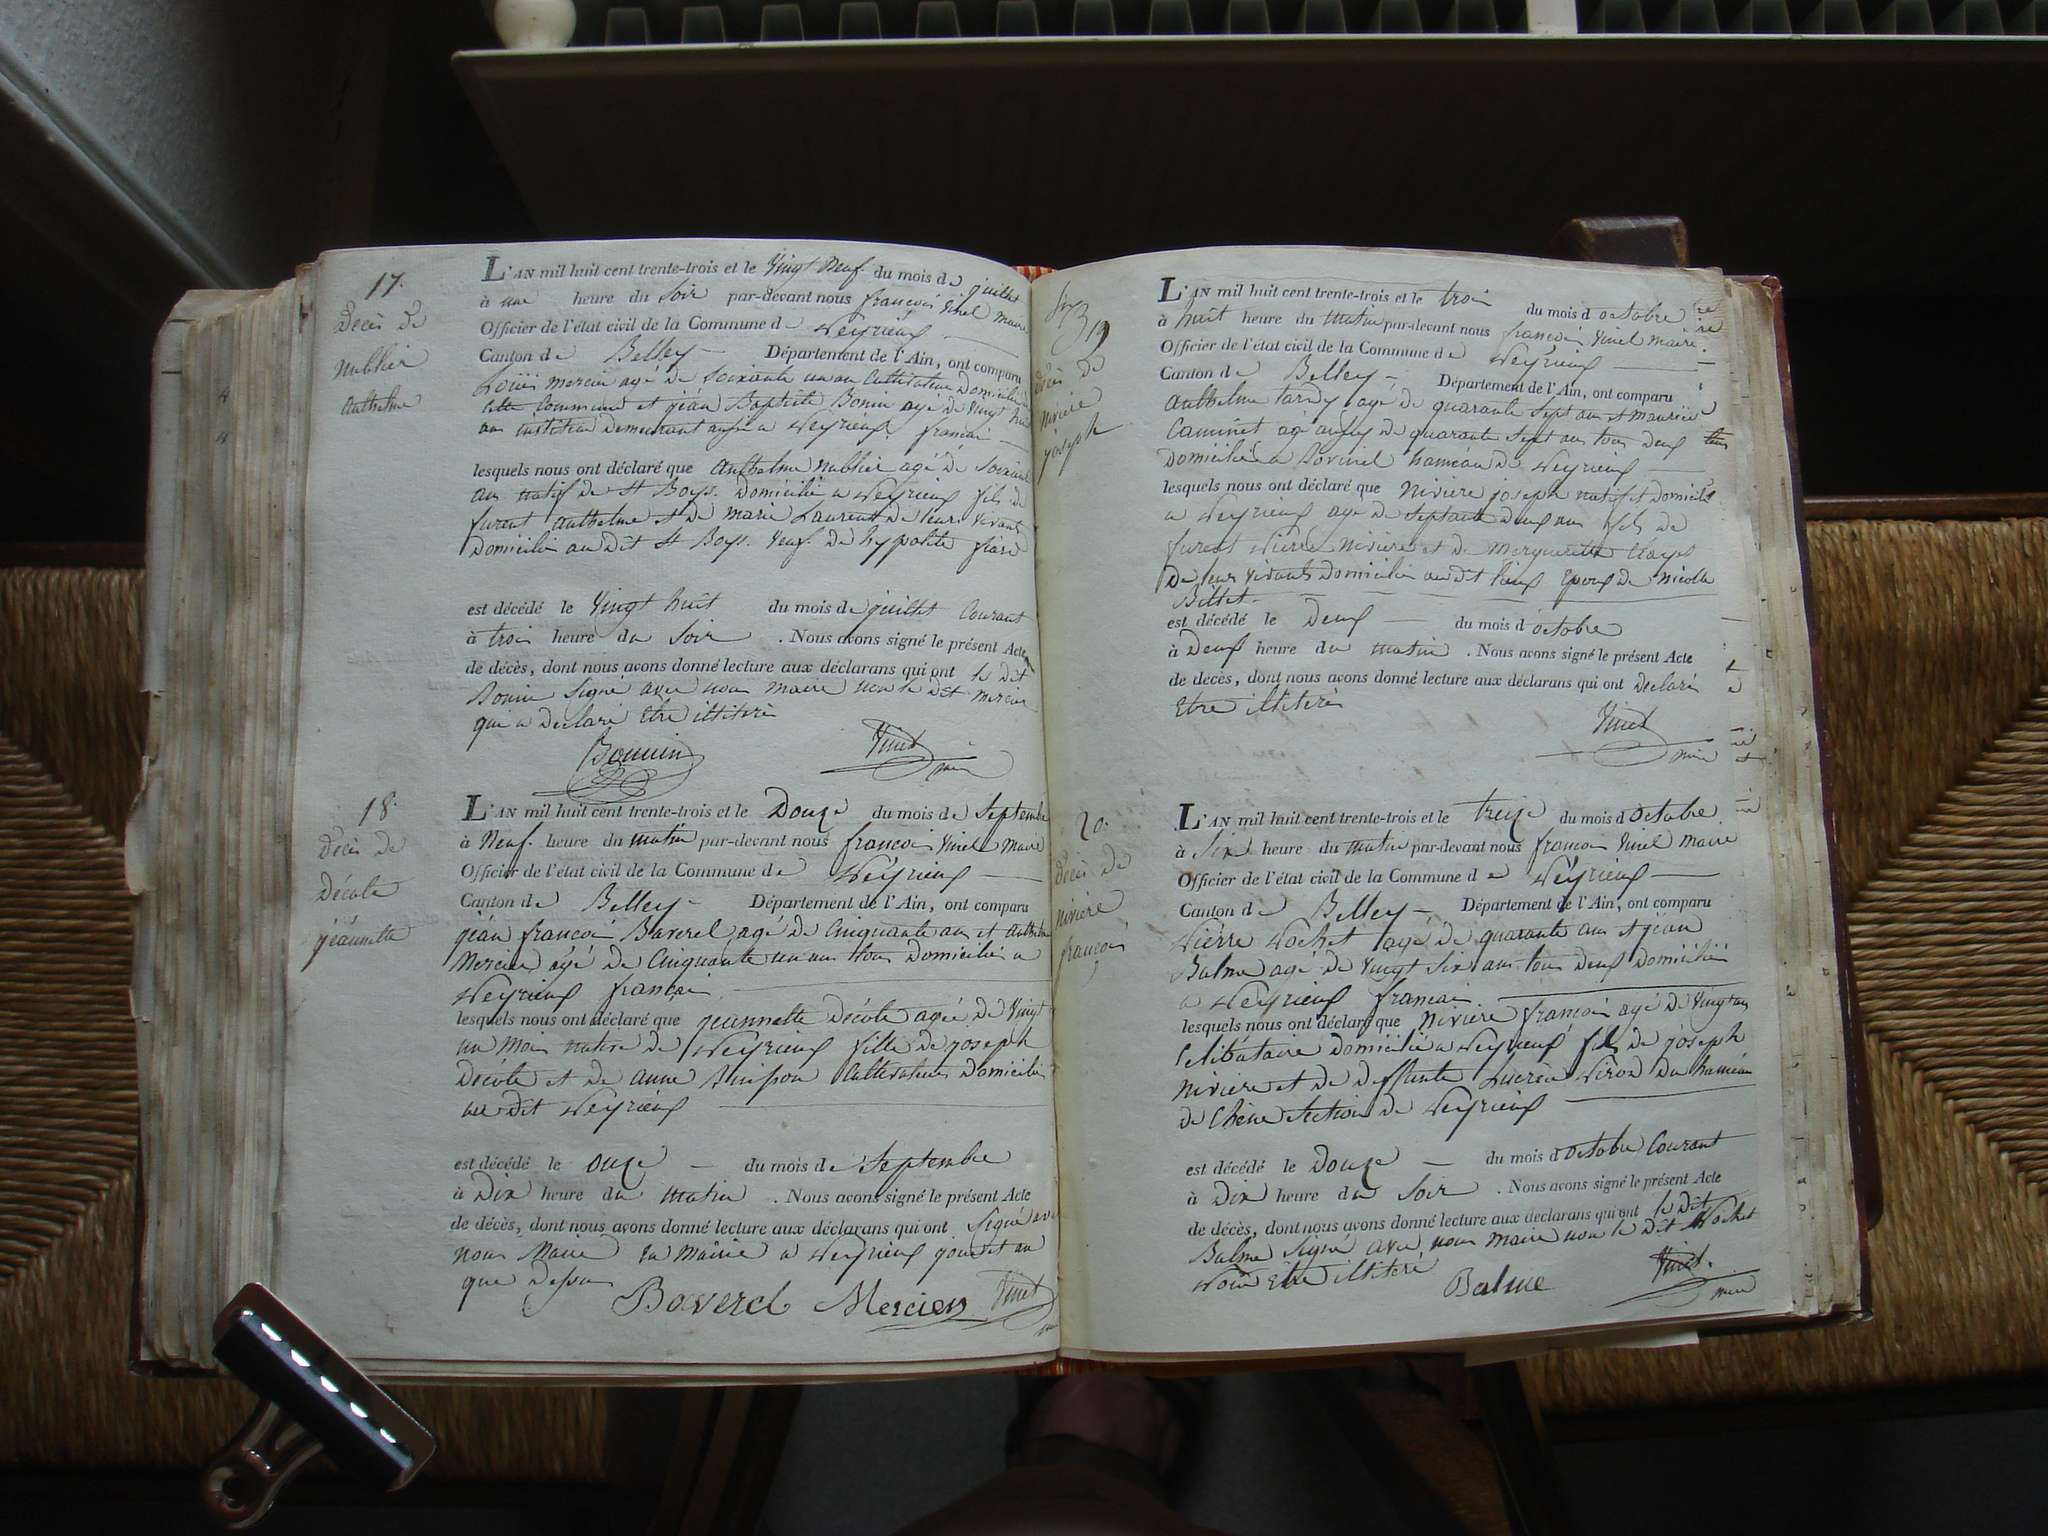 17.
Décès de
nublier
anthelme
L'AN mil huit cent trente-trois et le Vingt Neuf du mois de juillet
à une heure du Soir par-devant nous francois Vinet maire
Officier de l'état civil de la Commune de Peyrieux
Canton de Belley Département de l'Ain, ont comparu
Louis mercier agé de Soixante un an Cultivateur Domicilié
cette Commune et jean Baptiste Bonin agé de Vingt huit
ans instituteur demeurant aussi a Peyrieux francais
lesquels nous ont déclaré que anthelme nublier agé de Soixante
ans natif de St Boys. Domicilié a Peyrieux fils de
furent anthelme et de marie Laurent de leurs vivants
Domiciliés au dit St Boys. Veuf de hypolite
est décédé le Vingt huit du mois de juillet Courant
à trois heure du Soir . Nous avons signé le présent Acte
de décès, dont nous avons donné lecture aux déclarans qui ont le dit
Bonin Signé avec nous maire non le dit mercier
qui a declaré Etre illiteré
Bonnin Vinet
maire
18.
Décès de
Décote
jeannette
L'AN mil huit cent trente-trois et le Douze du mois de Septembre
à Neuf heure du matin par-devant nous francois Vinet maire
Officier de l'état civil de la Commune de Peyrieux
Canton de Belley Département de l'Ain, ont comparu
jean francois Baverel agé de Cinquante ans et anthelme
Mercier agé de Cinquante un ans tous Domiciliés a
Peyrieux francais
lesquels nous ont déclaré que jeannette Décote agée de Vingt
un mois native de Peyrieux fille de joseph
Décote et de anne Cultivateurs Domiciliés
au dit Peyrieux
est décédé le onze du mois de Septembre
à Dix heure du matin . Nous avons signé le présent Acte
de décès, dont nous avons donné lecture aux déclarans qui ont Signé avec
nous Maire En mairie a Peyrieux jour et an
que Dessus
Baverel Mercier Vinet
19
Décès de
niviere
joseph
L'AN mil huit cent trente-trois et le trois du mois d octobre
à huit heure du matin par-devant nous francois Vinet maire
Officier de l'état civil de la Commune de Peyrieux
Canton de Belley Département de l'Ain, ont comparu
anthelme tardy agé de quarante Sept ans et Maurice
Caminet agé aussy de quarante Sept ans tous deux
domiciliés a hameau de Peyrieux
lesquels nous ont déclaré que niviere joseph natif et domicilié
a Peyrieux agé de septante deux ans fils de
furent Pierre niviere et de Marguerite
de leurs vivants domiciliés au dit lieux Epoux de nicolle
Billet
est décédé le Deux du mois d octobre
à Deux heure du matin . Nous avons signé le présent Acte
de decès, dont nous avons donné lecture aux déclarans qui ont declaré
Etre illiterés
Vinet
maire
20.
Décès de
niviere
francois
L'AN mil huit cent trente-trois et le treize du mois d octobre
à Six heure du matin par-devant nous francois Vinet maire
Officier de l'état civil de la Commune de Peyrieux
Canton de Belley Département de l'Ain, ont comparu
Pierre Pochet agé de quarante ans et jean
Balme agé de Vingt Six ans tous Deux Domiciliés
a Peyrieux francais
lesquels nous ont déclaré que niviere francois agé de Vingt ans
Celibataire domicilié a Peyrieux fils de joseph
niviere et de deffunte Lucrèce Piron Du hameau
de Chêne Section de Peyrieux
est décédé le Douze du mois d octobre Courant
à Dix heure du Soir . Nous avons signé le présent Acte
de décès, dont nous avons donné lecture aux declarans qui ont le dit
Balme Signé avec nous maire non le dit Pochet
Pour Etre illiteré
Balme Vinet
maire